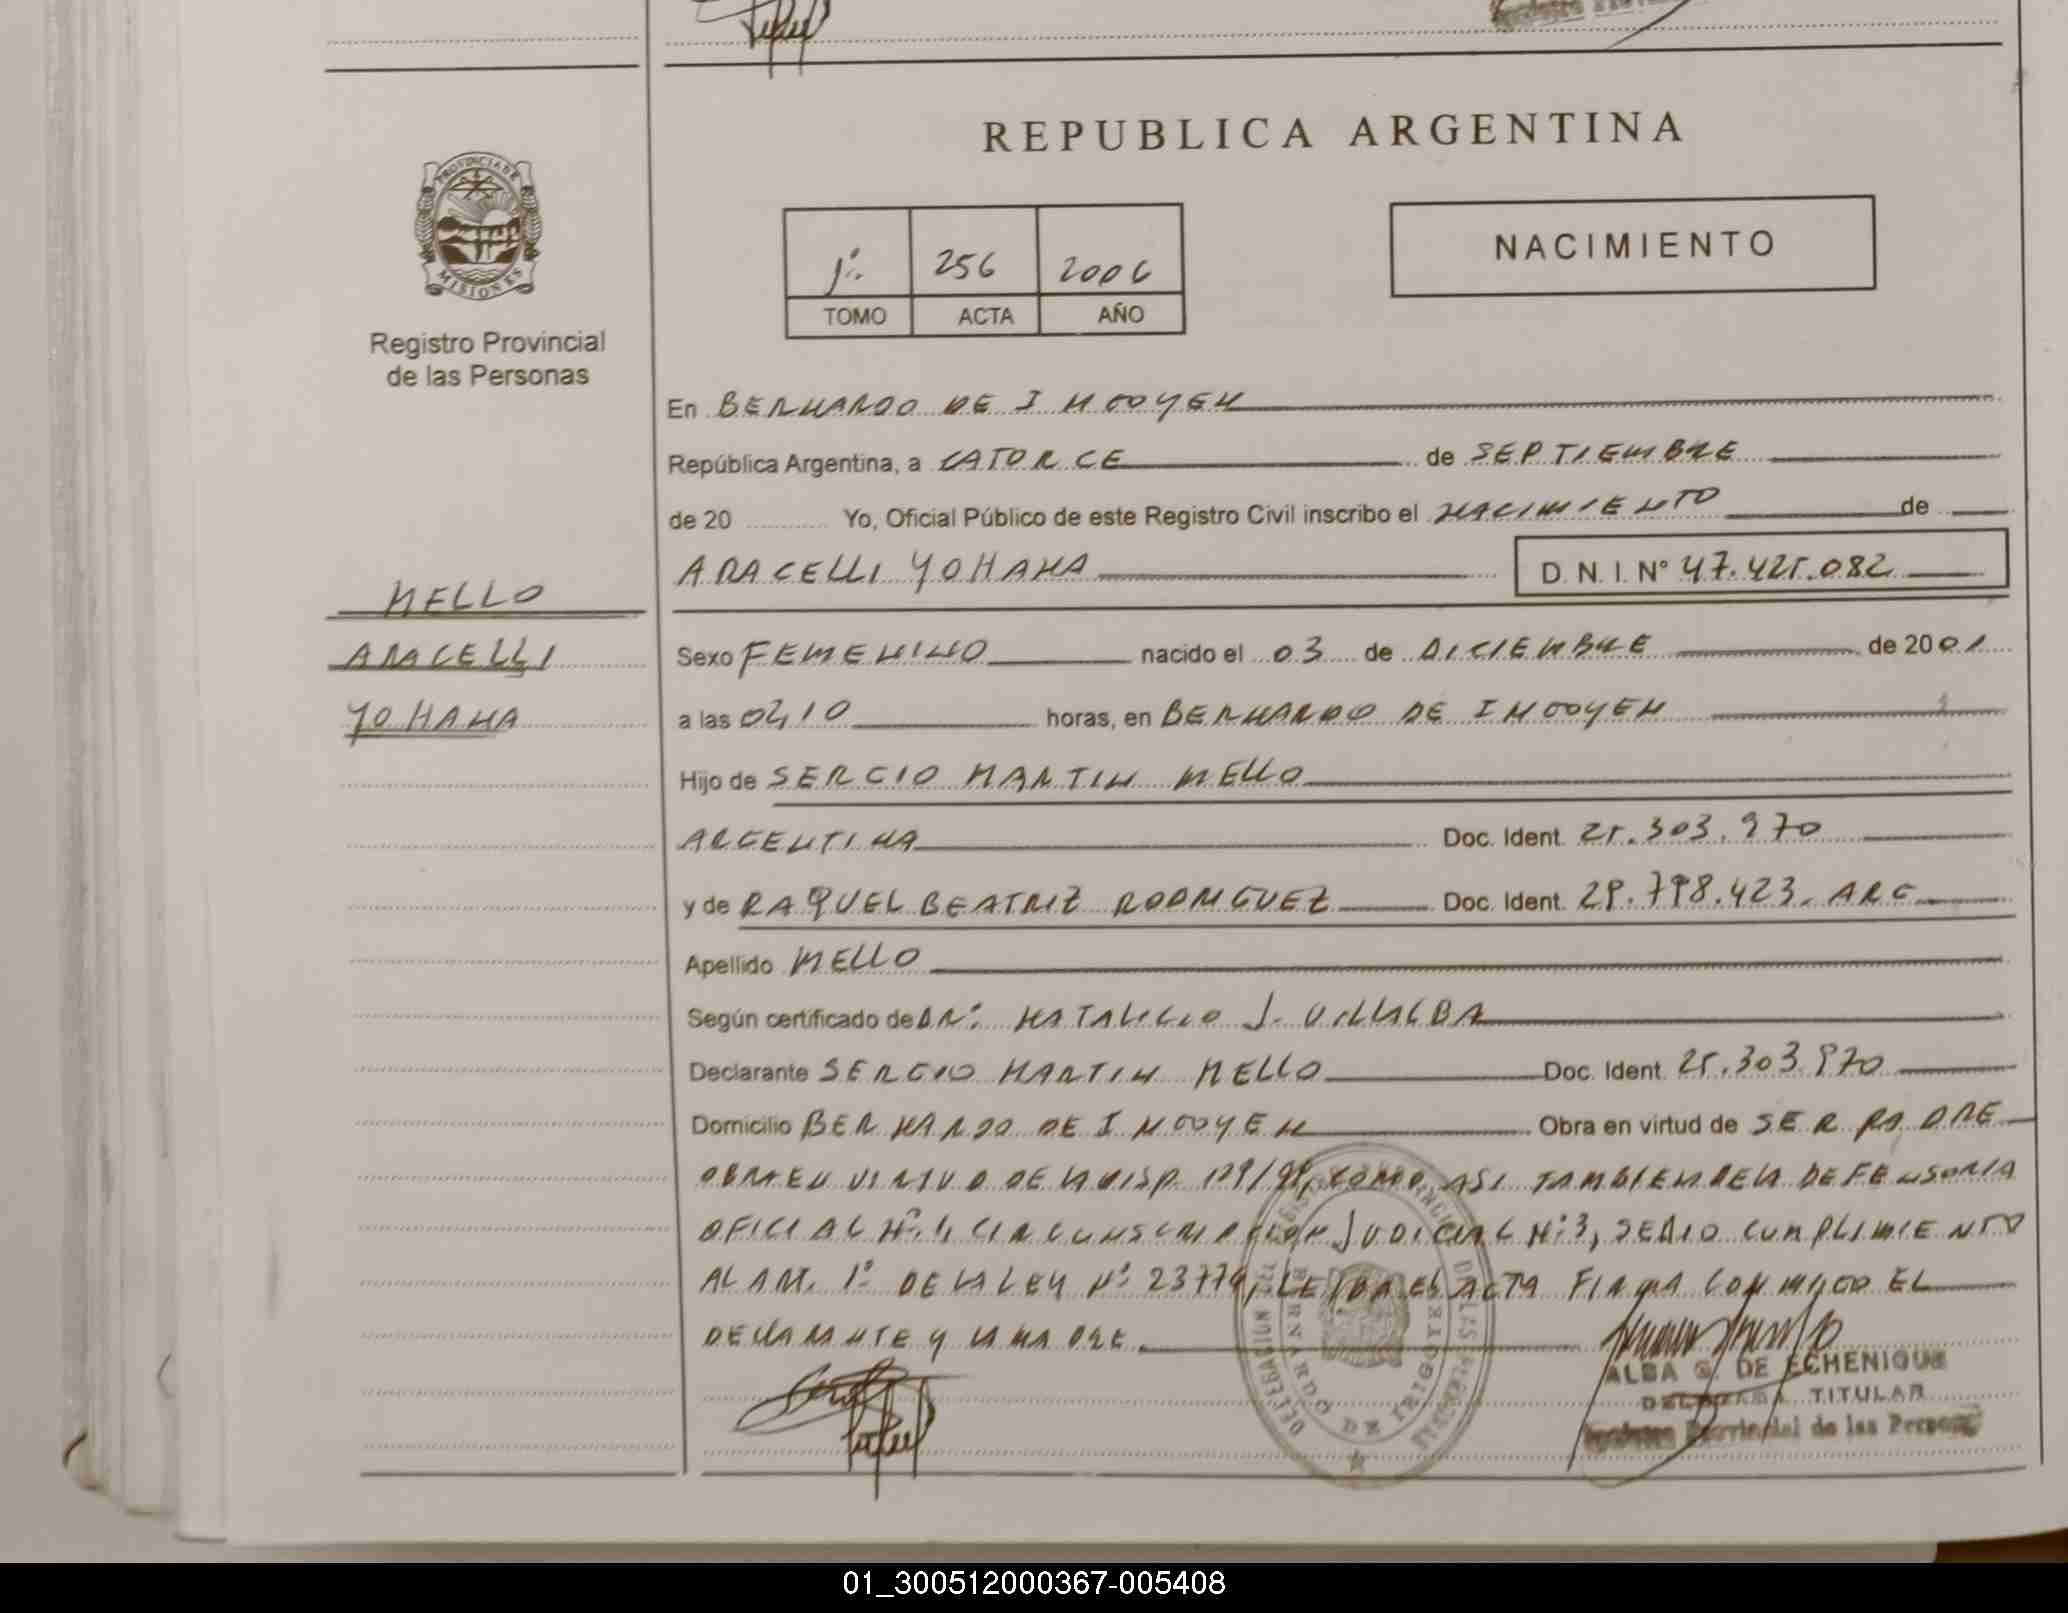 REPUBLICA ARGENTINA
PROVINCIA DE
MISIONES
Registro Provincial
de las Personas
1º
256
2006
TOMO
ACTA
AÑO
NACIMIENTO
En BERNARDO DE IRIGOYEN
República Argentina, a CATORCE de SEPTIEMBRE
de 20 Yo, Oficial Público de este Registro Civil inscribo el NACIMIENTO de
ARACELLI YOHANA D. N. I. Nº 47.425.082
MELLO
ARACELLI
YOHANA
Sexo FEMENINO nacido el 03 de DICIEMBRE de 2001
a las 04,10 horas, en BERNARDO DE IRIGOYEN
Hijo de SERGIO MARTIN MELLO
ARGENTINA Doc. Ident. 25.303.970
y de RAQUEL BEATRIZ RODRIGUEZ Doc. Ident. 29.798.423. ARG
Apellido MELLO
Según certificado de DRº. NATALICIO J. VILLALBA
Declarante SERGIO MARTIN MELLO Doc. Ident. 25.303.970
Domicilio BERNARDO DE IRIGOYEN Obra en virtud de SER PADRE
OBRA EN VIRTUD DE LA DISP. COMO ASI TAMBIEN DE LA DEFENSORIA
OFICIAL Nº. 1, CIRCUNSCRIPCION JUDICIAL Nº 3, SE DIO CUMPLIMIENTO
AL ART. 1º DE LA LEY Nº 23776, LEIDA EL ACTA FIRMA CONMIGO EL
DECLARANTE Y LA MADRE
ALBA G. DE ECHENIQUE
DELEGADA TITULAR
Registro Provincial de las Personas
01_300512000367-005408